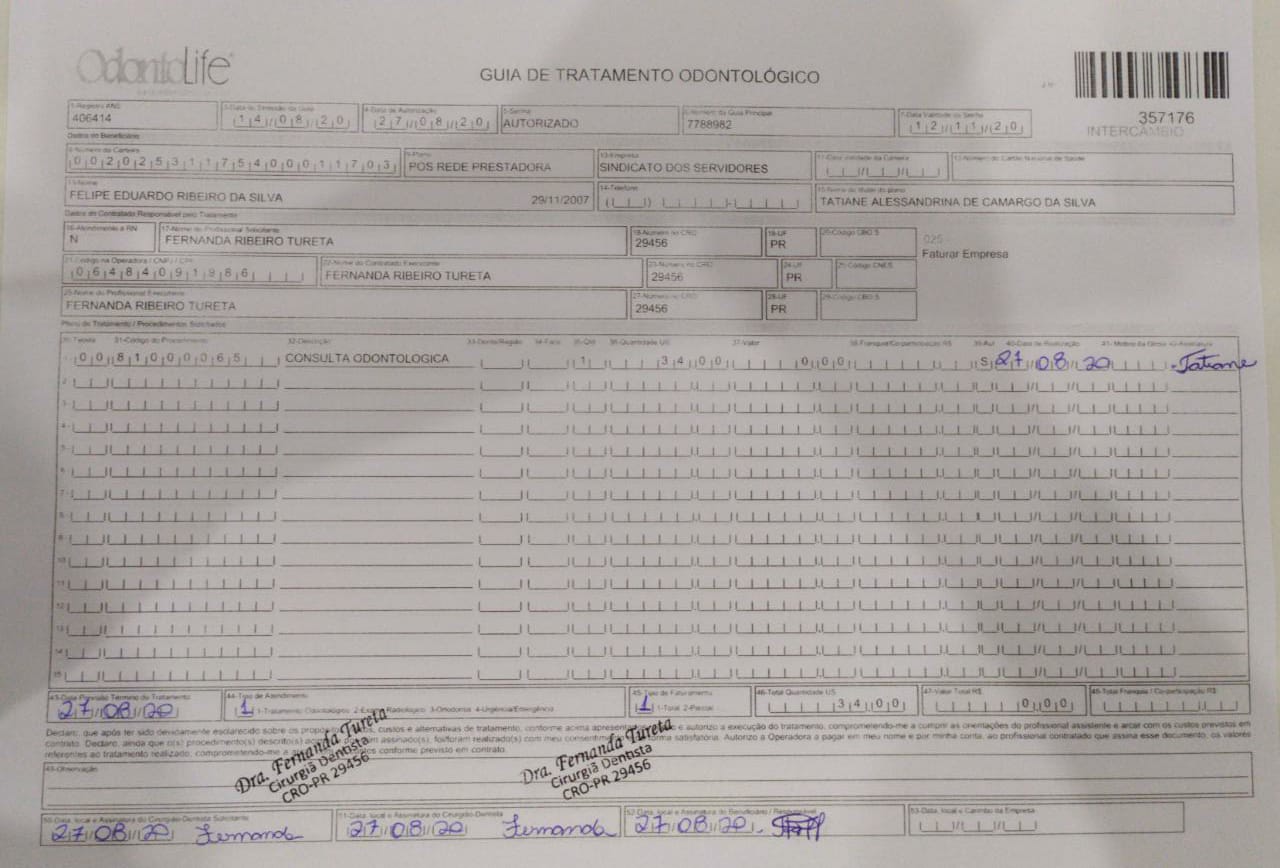 OdontoLife
GUIA DE TRATAMENTO ODONTOLÓGICO
357176
INTERCÂMBIO
1-Registro ANS 3-Data de Emissão da Guia 4-Data de Autorização 5-Senha 6-Número da Guia Principal 7-Data Validade da Senha
406414 14/08/20 27/08/20 AUTORIZADO 7788982 12/11/20
Dados do Beneficiário
8-Número da Carteira 9-Plano 10-Empresa 11-Data Validade da Carteira 12-Número do Cartão Nacional de Saúde
00202531175400011703 POS REDE PRESTADORA SINDICATO DOS SERVIDORES
13-Nome 14-Telefone 15-Nome do titular do plano
FELIPE EDUARDO RIBEIRO DA SILVA 29/11/2007 TATIANE ALESSANDRINA DE CAMARGO DA SILVA
Dados do Contratado Responsável pelo Tratamento
16-Atendimento a RN 17-Nome do Profissional Solicitante 18-Número no CRO 19-UF 20-Código CBO S
N FERNANDA RIBEIRO TURETA 29456 PR
025
Faturar Empresa
21-Código na Operadora / CNPJ / CPF 22-Nome do Contratado Executante 23-Número no CRO 24-UF 25-Código CNES
06484091986 FERNANDA RIBEIRO TURETA 29456 PR
26-Nome do Profissional Executante 27-Número no CRO 28-UF 29-Código CBO S
FERNANDA RIBEIRO TURETA 29456 PR
Plano de Tratamento / Procedimentos Solicitados
30-Tabela 31-Código do Procedimento 32-Descrição 33-Dente/Região 34-Face 35-Qtd 36-Quantidade US 37-Valor 38-Franquia/Co-participação R$ 39-Aut 40-Data de Realização 41-Motivo da Glosa 42-Assinatura
1- 00 81000065 CONSULTA ODONTOLOGICA 1 34,00 0,00 S 27/08/20 Tatiane
2-
3-
4-
5-
6-
7-
8-
9-
10-
11-
12-
13-
14-
15-
43-Data Previsão Término do Tratamento 44-Tipo de Atendimento 45-Tipo de Faturamento 46-Total Quantidade US 47-Valor Total R$ 48-Total Franquia / Co-participação R$
27/08/20 1 1-Tratamento Odontológico 2-Exame Radiológico 3-Ortodontia 4-Urgência/Emergência 1 1-Total 2-Parcial 34,00 0,00
Declaro, que após ter sido devidamente esclarecido sobre os propósitos, custos e alternativas de tratamento, conforme acima apresentados e autorizo a execução do tratamento, comprometendo-me a cumprir as orientações do profissional assistente e arcar com os custos previstos em
contrato. Declaro, ainda que o(s) procedimento(s) descrito(s) assinado(s), foi/foram realizado(s) com meu consentimento forma satisfatória. Autorizo a Operadora a pagar em meu nome e por minha conta, ao profissional contratado que assina esse documento, os valores
referentes ao tratamento realizado, comprometendo-me a custos conforme previsto em contrato.
Dra. Fernanda Tureta
Cirurgiã Dentista
CRO-PR 29456
Dra. Fernanda Tureta
Cirurgiã Dentista
CRO-PR 29456
49-Observação
50-Data, local e Assinatura do Cirurgião-Dentista Solicitante 51-Data, local e Assinatura do Cirurgião-Dentista 52-Data, local e Assinatura do Beneficiário / Responsável 53-Data, local e Carimbo da Empresa
27/08/20 Fernanda 27/08/20 Fernanda 27/08/20